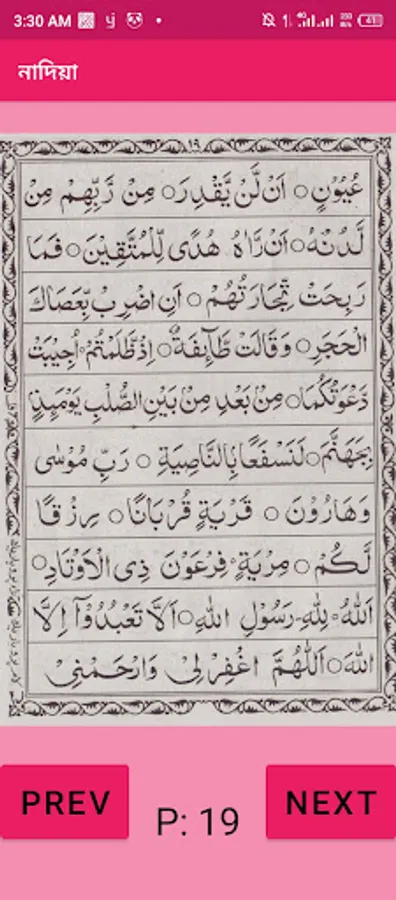 3:30 AM
নাদিয়া
١٩
عُيُوْنٍ ○ اَنْ لَّنْ يَّقْدِرَ ○ مِنْ رَّبِّهِمْ مِنْ
لَّدُنْهُ ○ اَنْ رَّاٰهُ هُدًى لِّلْمُتَّقِيْنَ ○ فَمَا
رَبِحَتْ تِّجَارَتُهُمْ ○ اَنِ اضْرِبْ بِّعَصَاكَ
الْحَجَرَ ○ وَقَالَتْ طَّآئِفَةٌ ○ اِذْ ظَّلَمْتُمْ ○ اُجِيْبَتْ
دَّعْوَتُكُمَا ○ مِنْۢ بَعْدِ مِنْۢ بَيْنِ الصُّلْبِ يَوْمَئِذٍۢ
بِجَهَنَّمَ ○ لَنَسْفَعًۢا بِالنَّاصِيَةِ ○ رَبِّ مُوْسٰى
وَهَارُوْنَ ○ قَرْيَةٍ قُرْبَانًا ○ رِزْقًا
لَّكُمْ ○ مِرْيَةٍ ○ فِرْعَوْنَ ذِى الْاَوْتَادِ ○
اَللّٰهُ ○ لِلّٰهِ ○ رَسُوْلِ اللّٰهِ ○ اَلَّا تَعْبُدُوْٓا اِلَّا
اللّٰهَ ○ اَللّٰهُمَّ اغْفِرْ لِىْ وَارْحَمْنِىْ
PREV
P: 19
NEXT